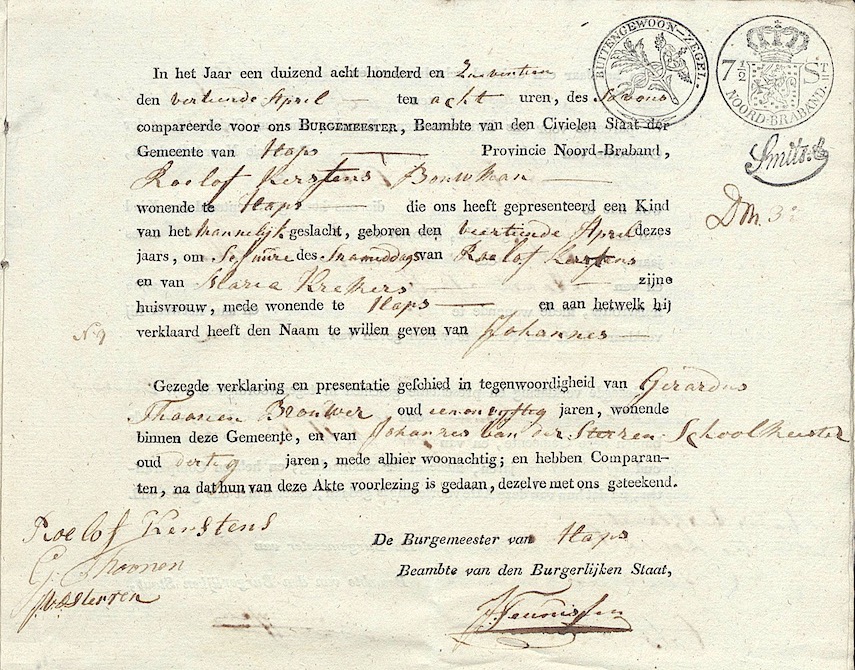 BUITENGEWOON-ZEGEL.
7 1/2 ST
NOORD-BRABAND.
Smits
In het Jaar een duizend acht honderd en
den veertiende April ten acht uren, des Savons
compareerde voor ons BURGEMEESTER, Beambte van den Civielen Staat der
Gemeente van Haps Provincie Noord-Braband,
Roelof Kerstens Bouwman
wonende te Haps die ons heeft gepresenteerd een Kind
van het mannelijk geslacht, geboren den veertiende April dezes
jaars, om des Snamiddags van Roelof Kerstens
en van Maria Kremers zijne
huisvrouw, mede wonende te Haps en aan hetwelk hij
verklaard heeft den Naam te willen geven van Johannes
No 9
Gezegde verklaring en presentatie geschied in tegenwoordigheid van Gerardus
Thoonen Brouwer oud eenenvyftig jaren, wonende
binnen deze Gemeente, en van Johannes van der Sterren Schoolmeester
oud dertig jaren, mede alhier woonachtig; en hebben Comparan-
ten, na dat hun van deze Akte voorlezing is gedaan, dezelve met ons geteekend.
Roelof Kerstens
G. Thoonen
De Burgemeester van Haps
Beambte van den Burgerlijken Staat,